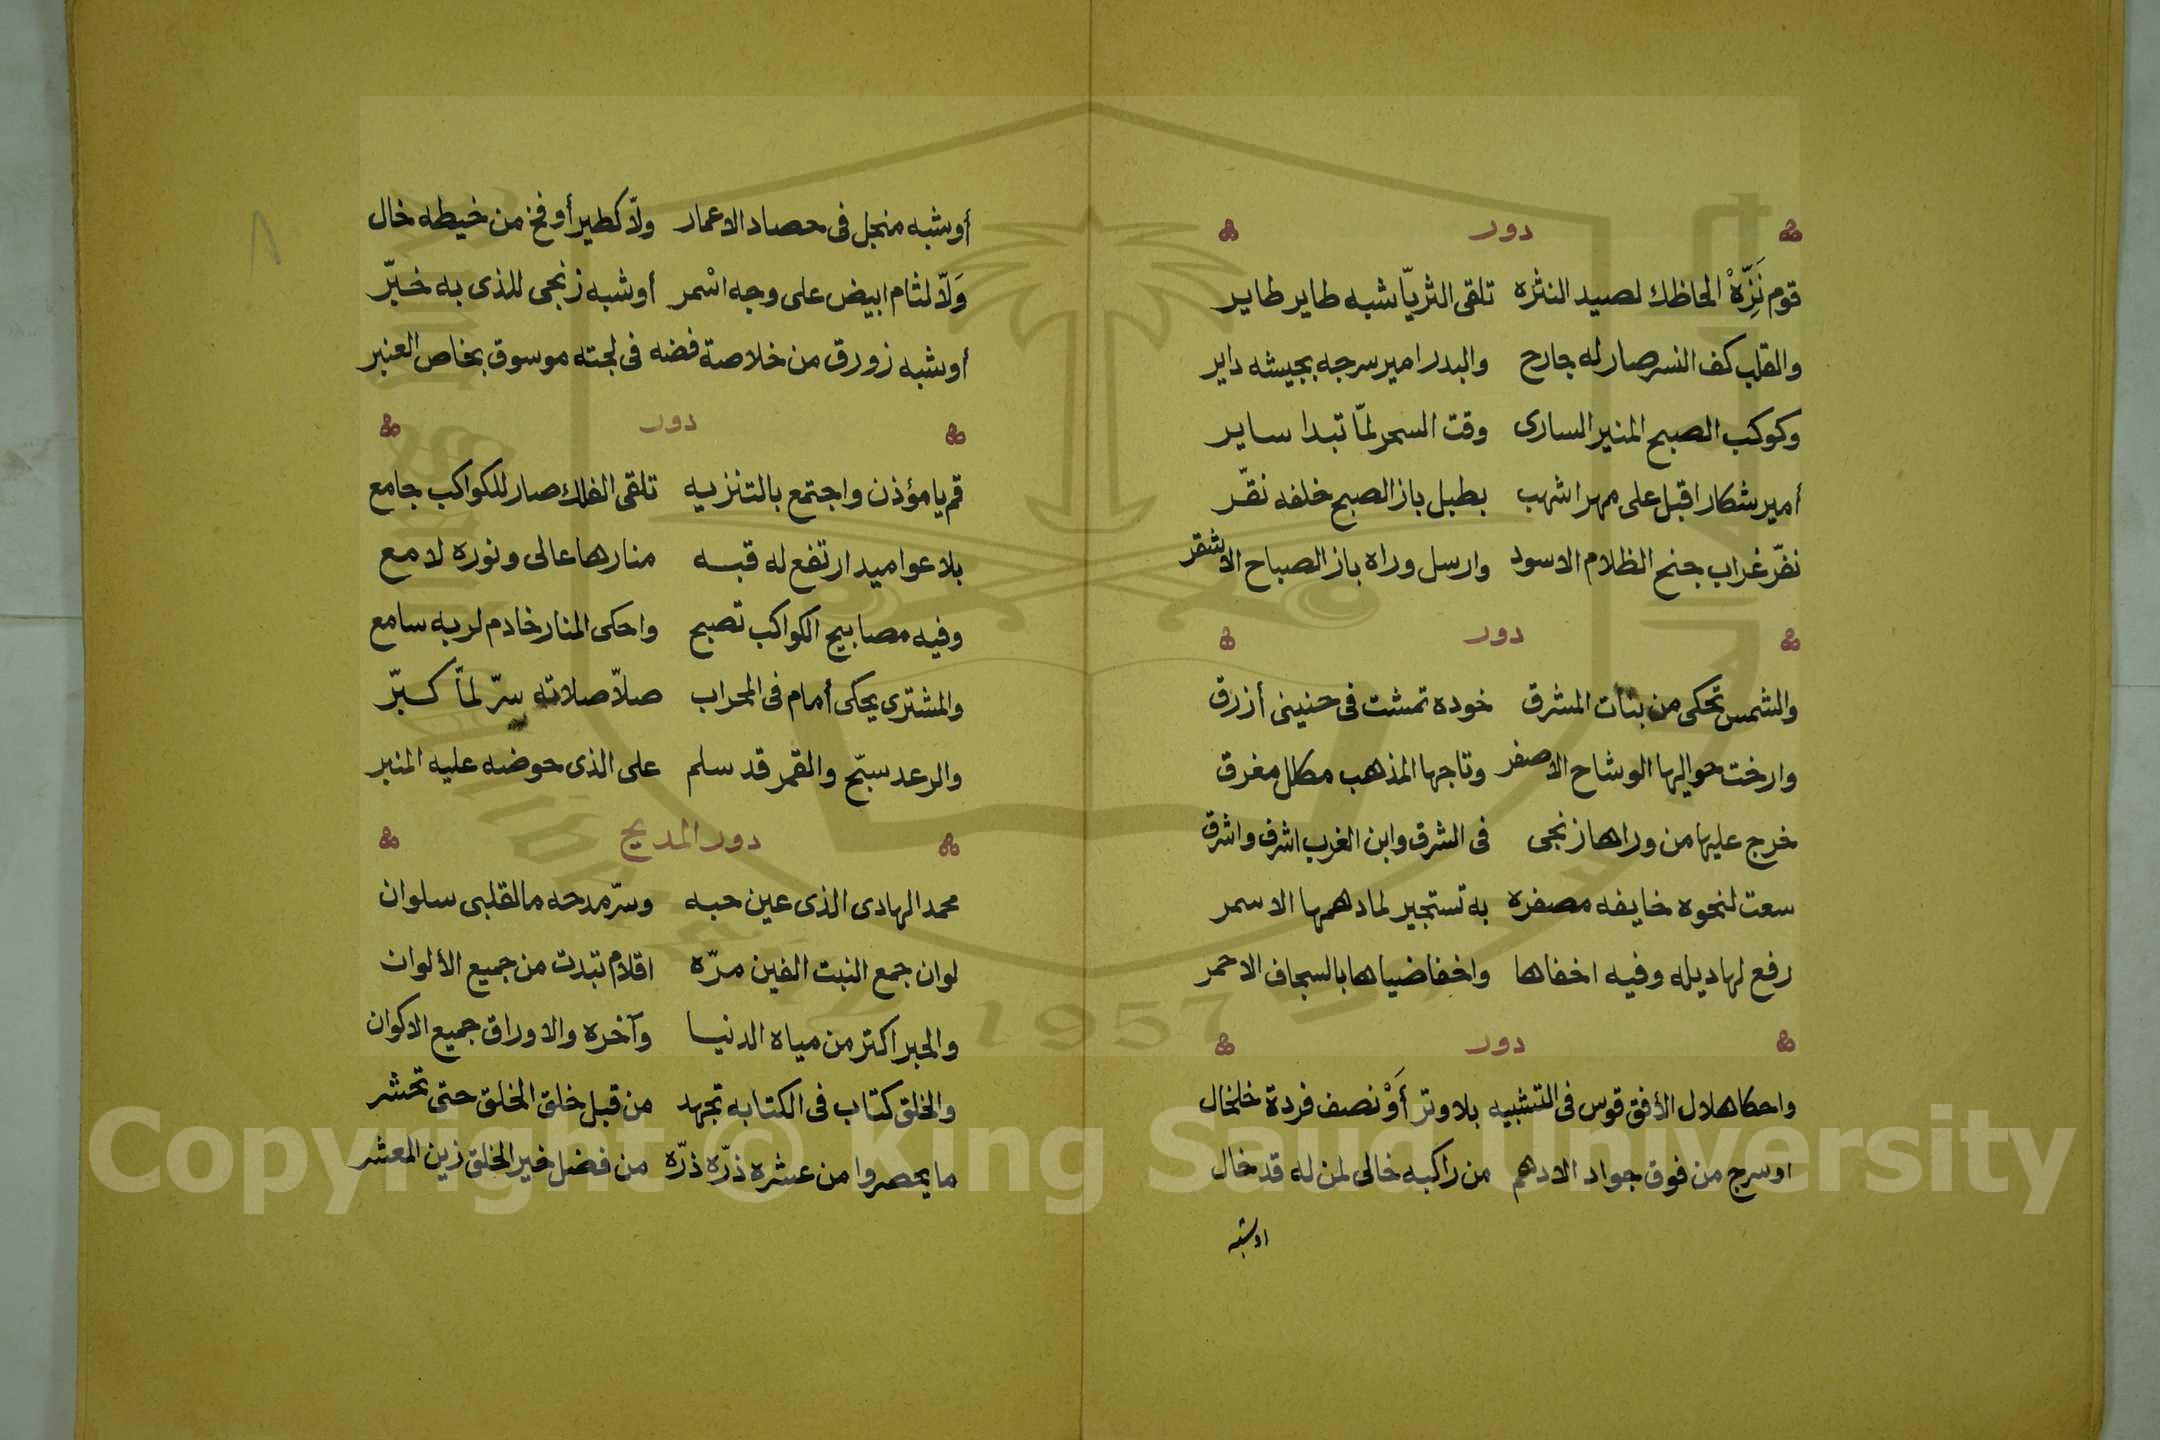 دور
قوم نَزِّهْ الحاظك لصيد النثره تلقى الثريّا شبه طاير طاير
والقلب كف النسر صار له جارح والبدر امير سرجه بجيشه داير
وكوكب الصبح المنير السارى وقت السحر لمّا تبدا ساير
أمير شكار اقبل على مهر اشهب بطبل باز الصبح خلفه نقّر
نفّر غراب جنح الظلام الاسود وارسل وراه باز الصباح الاشقر
دور
والشمس تحكى من بنات المشرق خوده تمشت فى حنينى أزرق
وارخت حواليها الوشاح الاصفر وتاجها المذهب مكلل مغرق
خرج عليها من وراها زنجى فى الشرق وابن الغرب اشرف واشرق
سعت لنحوه خايفه مصفره به تستجير لما دهمها الاسمر
رفع لها ديله وفيه اخفاها واخفا ضياها بالسجاف الاحمر
دور
واحكا هلال الأفق قوس فى التشبيه بلا وتر أَوْ نصف فردة خلخال
اوسرج من فوق جواد الادهم من راكبه خالى لمن له قد خال
اوشبه
أوشبه منجل فى حصاد الاعمار ولّا كطير أوفخ من خيطه خال
وَلّا لثام ابيض على وجه اسْمر أوشبه زنجى للذى به خبّر
أوشبه زورق من خلاصة فضه فى لجته موسوق بخاص العنبر
دور
قم يا مؤذن واجتمع بالتنزيه تلقى الفلك صار للكواكب جامع
بلا عواميد ارتفع له قبه منارها عالى ونوره لامع
وفيه مصابيح الكواكب تصبح واحكى المنار خادم لربه سامع
والمشترى يحكى أمام فى المحراب صلّا صلاته سرّ لمّا كبّر
والرعد سبّح والقمر قد سلم على الذى حوضه عليه المنبر
دور المديح
محمد الهادى الذى عين حبه وسرّ مدحه ما لقلبى سلوان
لوان جمع النبت الفين مرّه اقلام تبدت من جميع الألوان
والحبر اكتر من مياه الدنيا وآخره والاوراق جميع الاكوان
والخلق كتاب فى الكتابه تجهد من قبل خلق الخلق حتى تحشر
ما يحصروا من عشره ذرّه ذرّه من فضل خير الخلق زين المعشر
٨
1957
Copyright © King Saud University